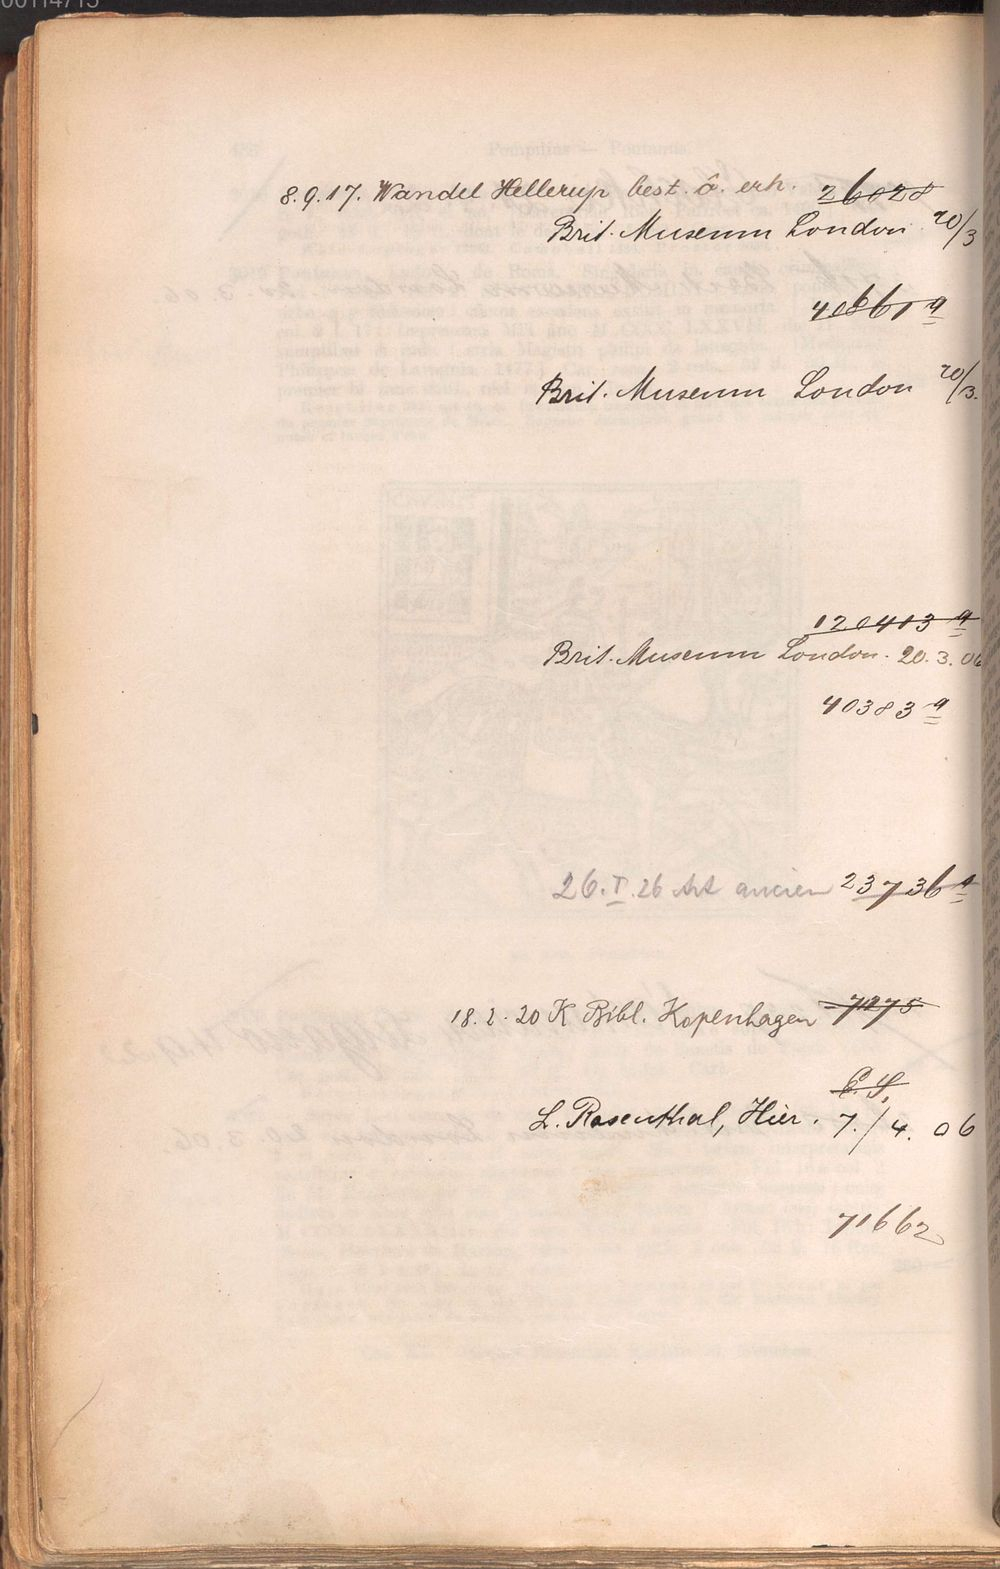 00114715
8.9.17. Wandel Hellerup best. o. erh. 26028
Brit. Museum London 20/3
40861 a
Brit. Museum London 20/3.
120413 a
Brit. Museum London. 20.3.06
40383 a
26.I.26 Art ancien 23736 a
18.2.20 K Bibl. Kopenhagen 7275
L. Rosenthal, Hier. 7./4. 06
71662